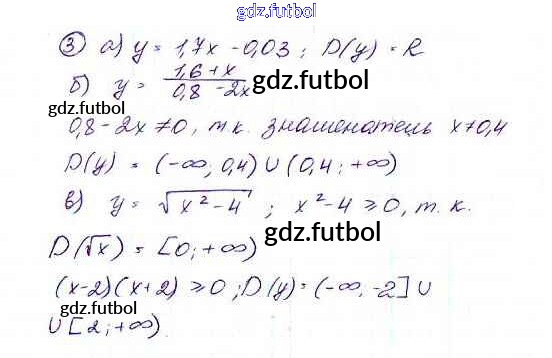 gdz.futbol
③ а) y = 1,7x - 0,03 ; D(y) = R
б) y = (1,6 + x)/(0,8 - 2x)
gdz.futbol
gdz.futbol
0,8 - 2x ≠ 0, т.к. знаменатель x ≠ 0,4
D(y) = (-∞; 0,4) ∪ (0,4; +∞)
в) y = √(x² - 4) ; x² - 4 ≥ 0, т.к.
D(√x) = [0; +∞)
gdz.futbol
(x-2)(x+2) ≥ 0 ; D(y) = (-∞; -2] ∪
∪ [2; +∞)
gdz.futbol